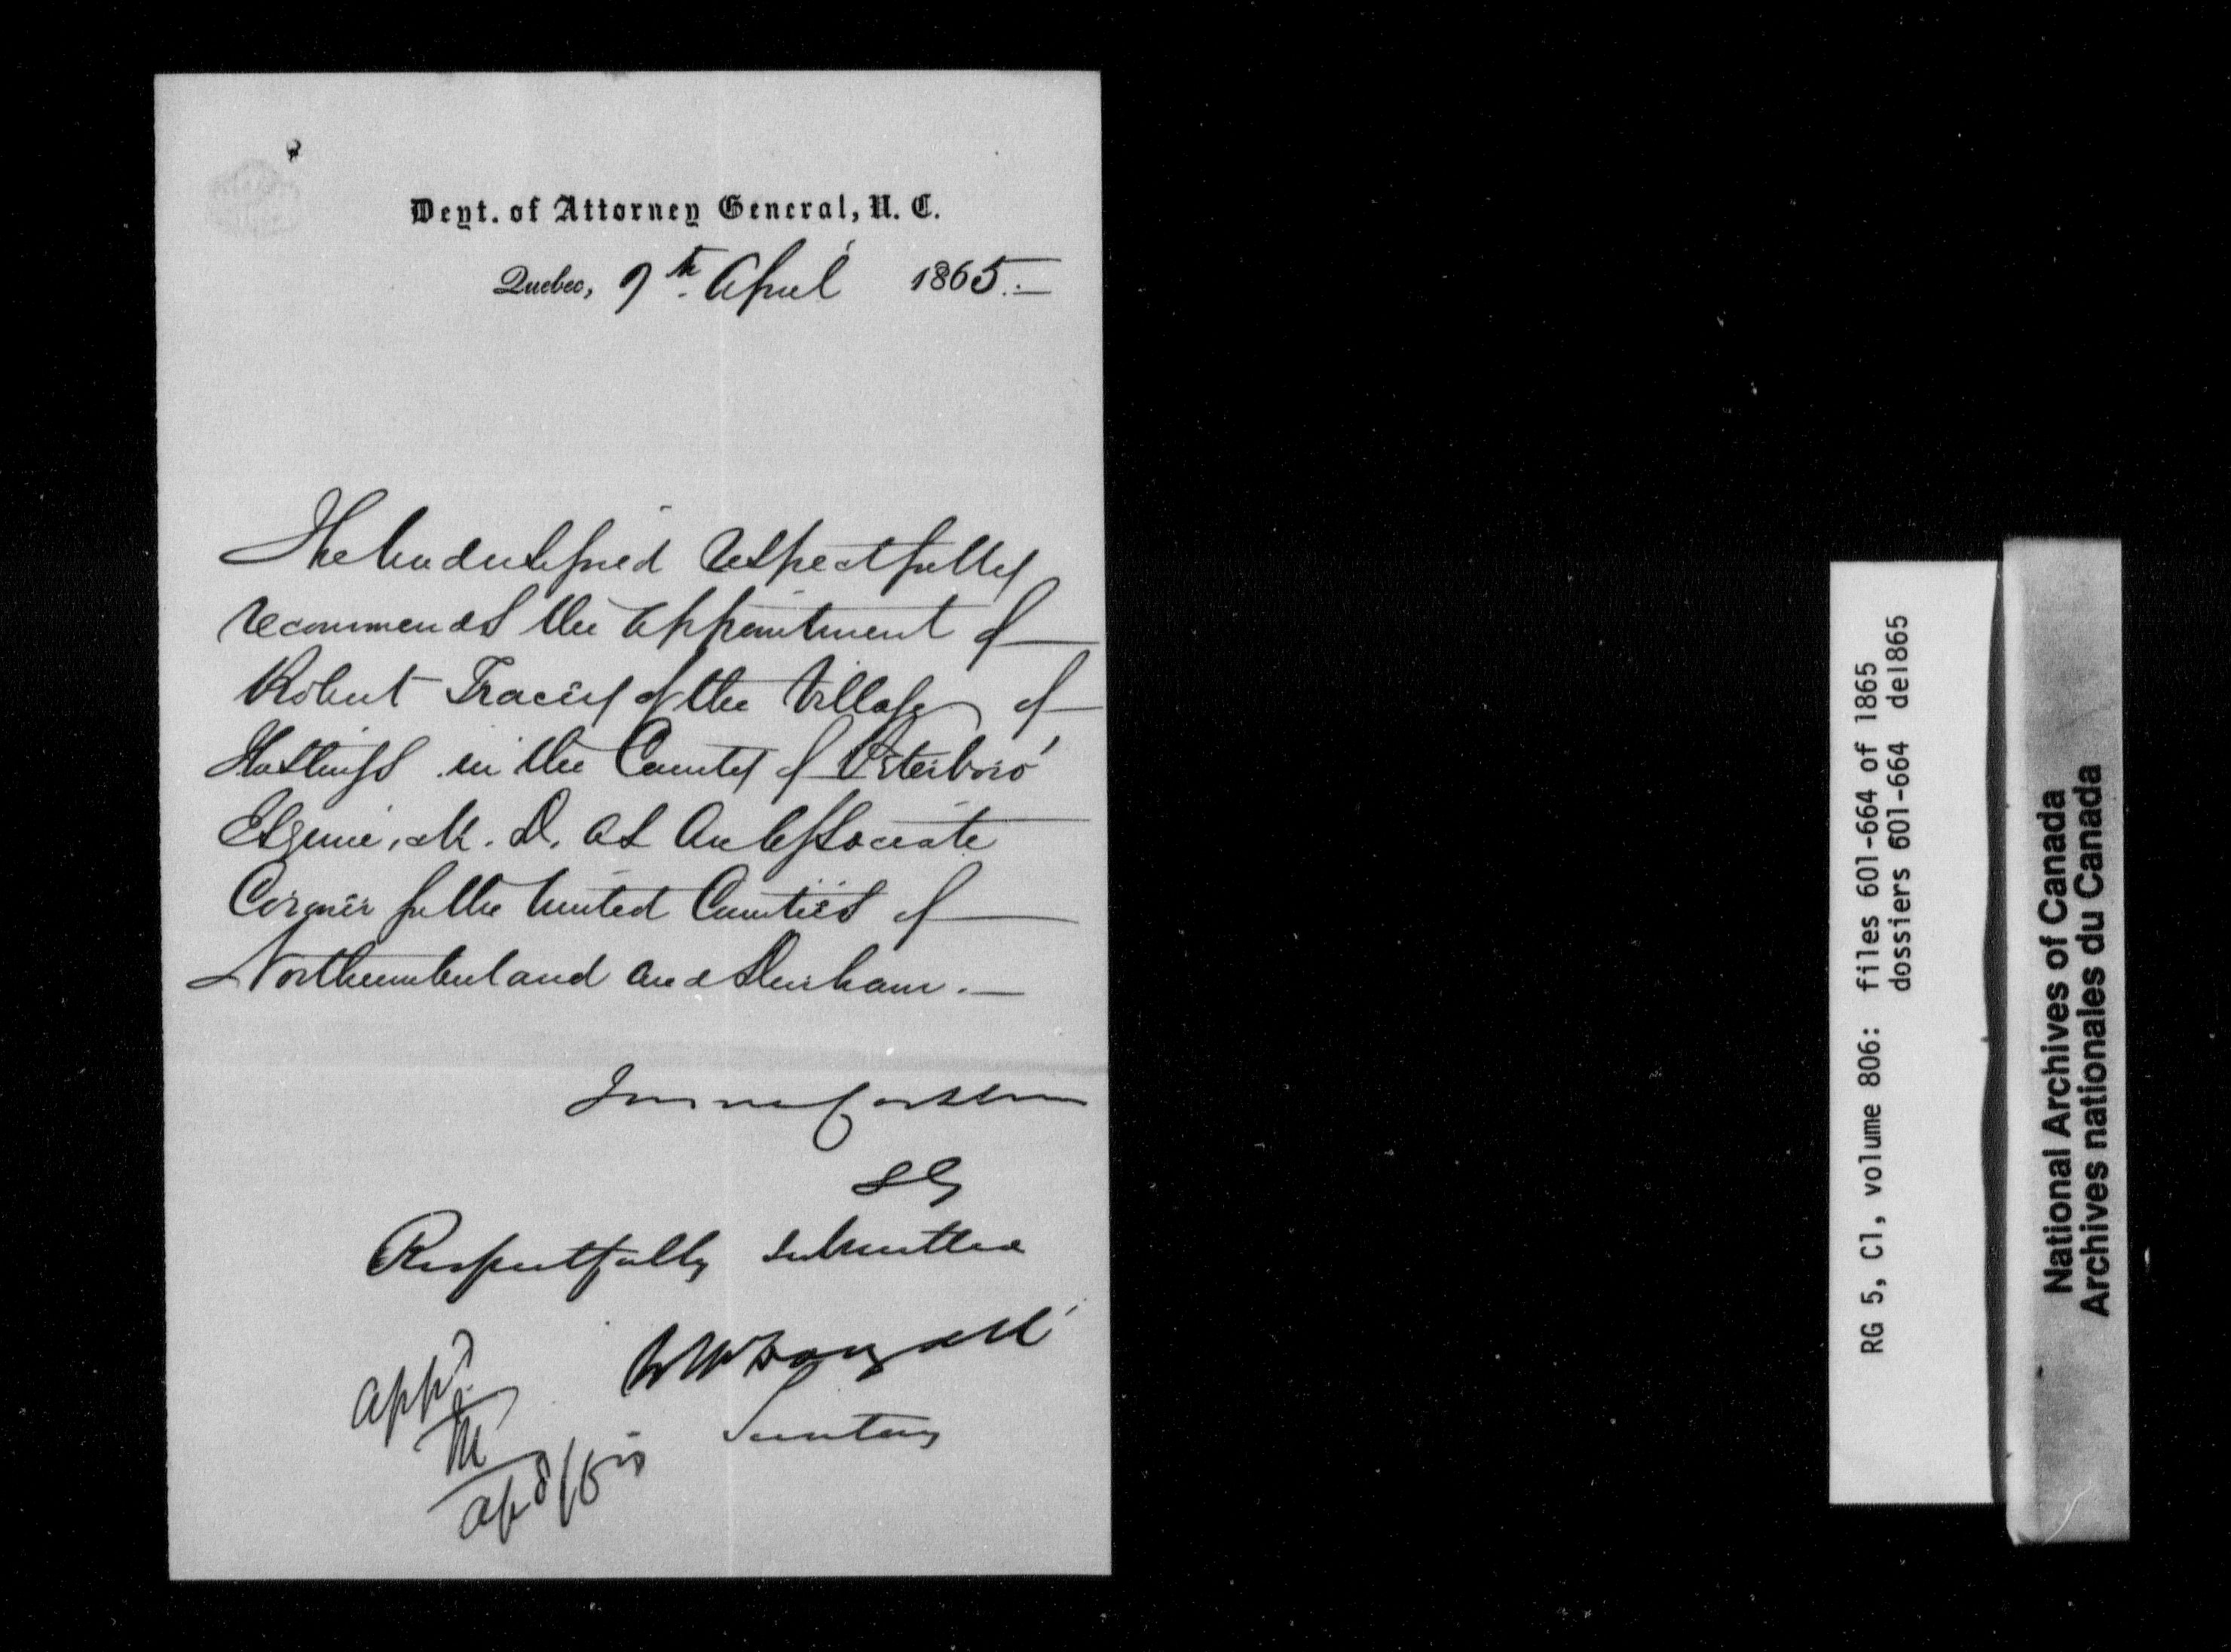 Dept. of Attorney General, U. C.
Quebec, 7th. April 1865.—
The Undersigned respectfully
recommends the appointment of
Robert Tracey of the Village of
Hastings in the County of Peterboro'
Esquire, M. D. as an Associate
Coroner for the United Counties of
Northumberland and Durham.—
SG
Respectfully submitted
W McDougall
Secretary
appd
M
ap 8/65
RG 5, C1, volume 806: files 601-664 of 1865
dossiers 601-664 de1865
National Archives of Canada
Archives nationales du Canada